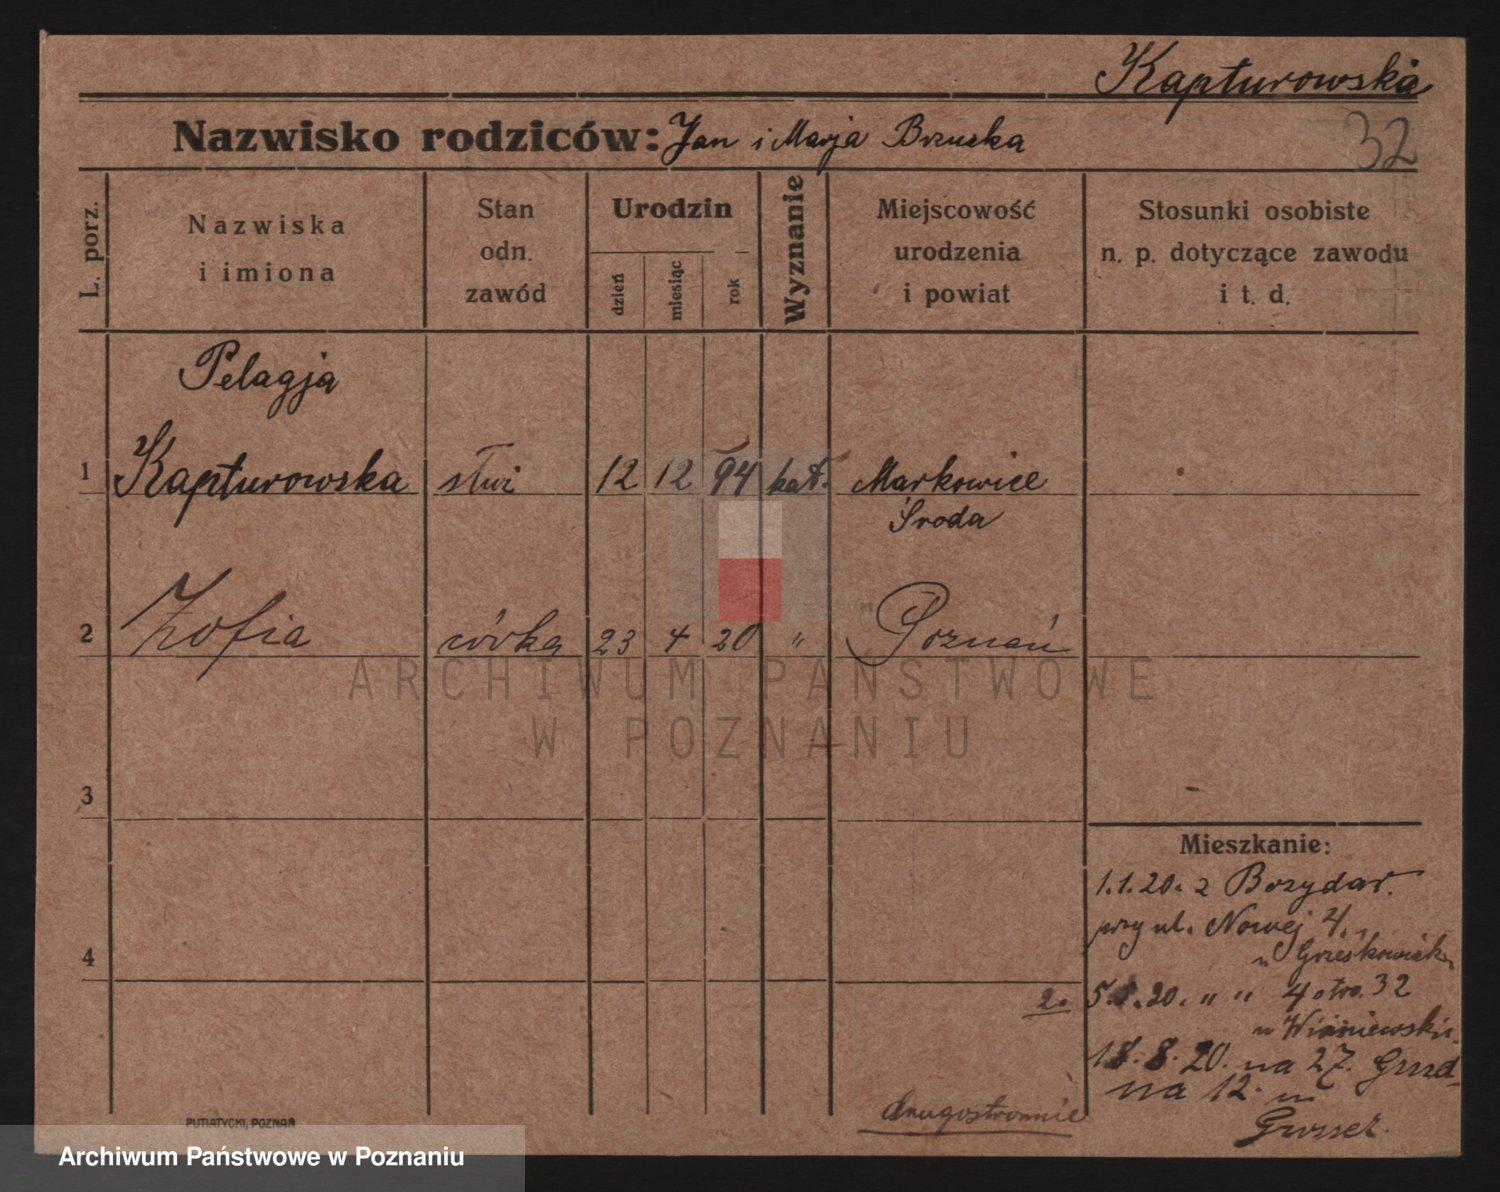 Kapturowska
Nazwisko rodziców: Jan i Marja Brzuska
32
L. porz.
Nazwiska
i imiona
Stan
odn.
zawód
Urodzin
dzień
miesiąc
rok
Wyznanie
Miejscowość
urodzenia
i powiat
Stosunki osobiste
n. p. dotyczące zawodu
i t. d.
Pelagja
1 Kapturowska służ 12 12 94 kat. Markowice
Środa
2 Zofia córka 23 4 20 " Poznań
3
4
Mieszkanie:
1.1.20. z Bozydar.
przy ul. Nowej 4.
u Grześkowiak
2. 5. .20. " " 4 otro. 32
u Wiśniewski
18.8.20. na 27. Grud
na 12. u
drugostronnie
PUTIATYCKI, POZNAŃ
ARCHIWUM PAŃSTWOWE
W POZNANIU
Archiwum Państwowe w Poznaniu